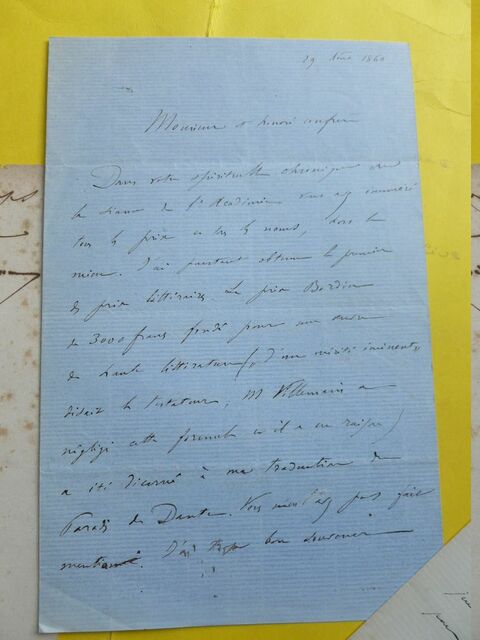 29 Août 1860
Monsieur et honoré confrère
Dans votre spirituelle chronique sur
la séance de l'Académie vous avez énuméré
tous les prix et tous les noms, sauf le
mien. J'ai pourtant obtenu le premier
des prix littéraires. Le prix Bordin
de 3000 francs fondé pour une œuvre
de haute littérature (d'un mérite éminent,
disait le testateur, M Villemain a
négligé cette formule et il a eu raison)
a été décerné à ma traduction du
Paradis de Dante. Vous n'en avez pas fait
mention. bon souvenir